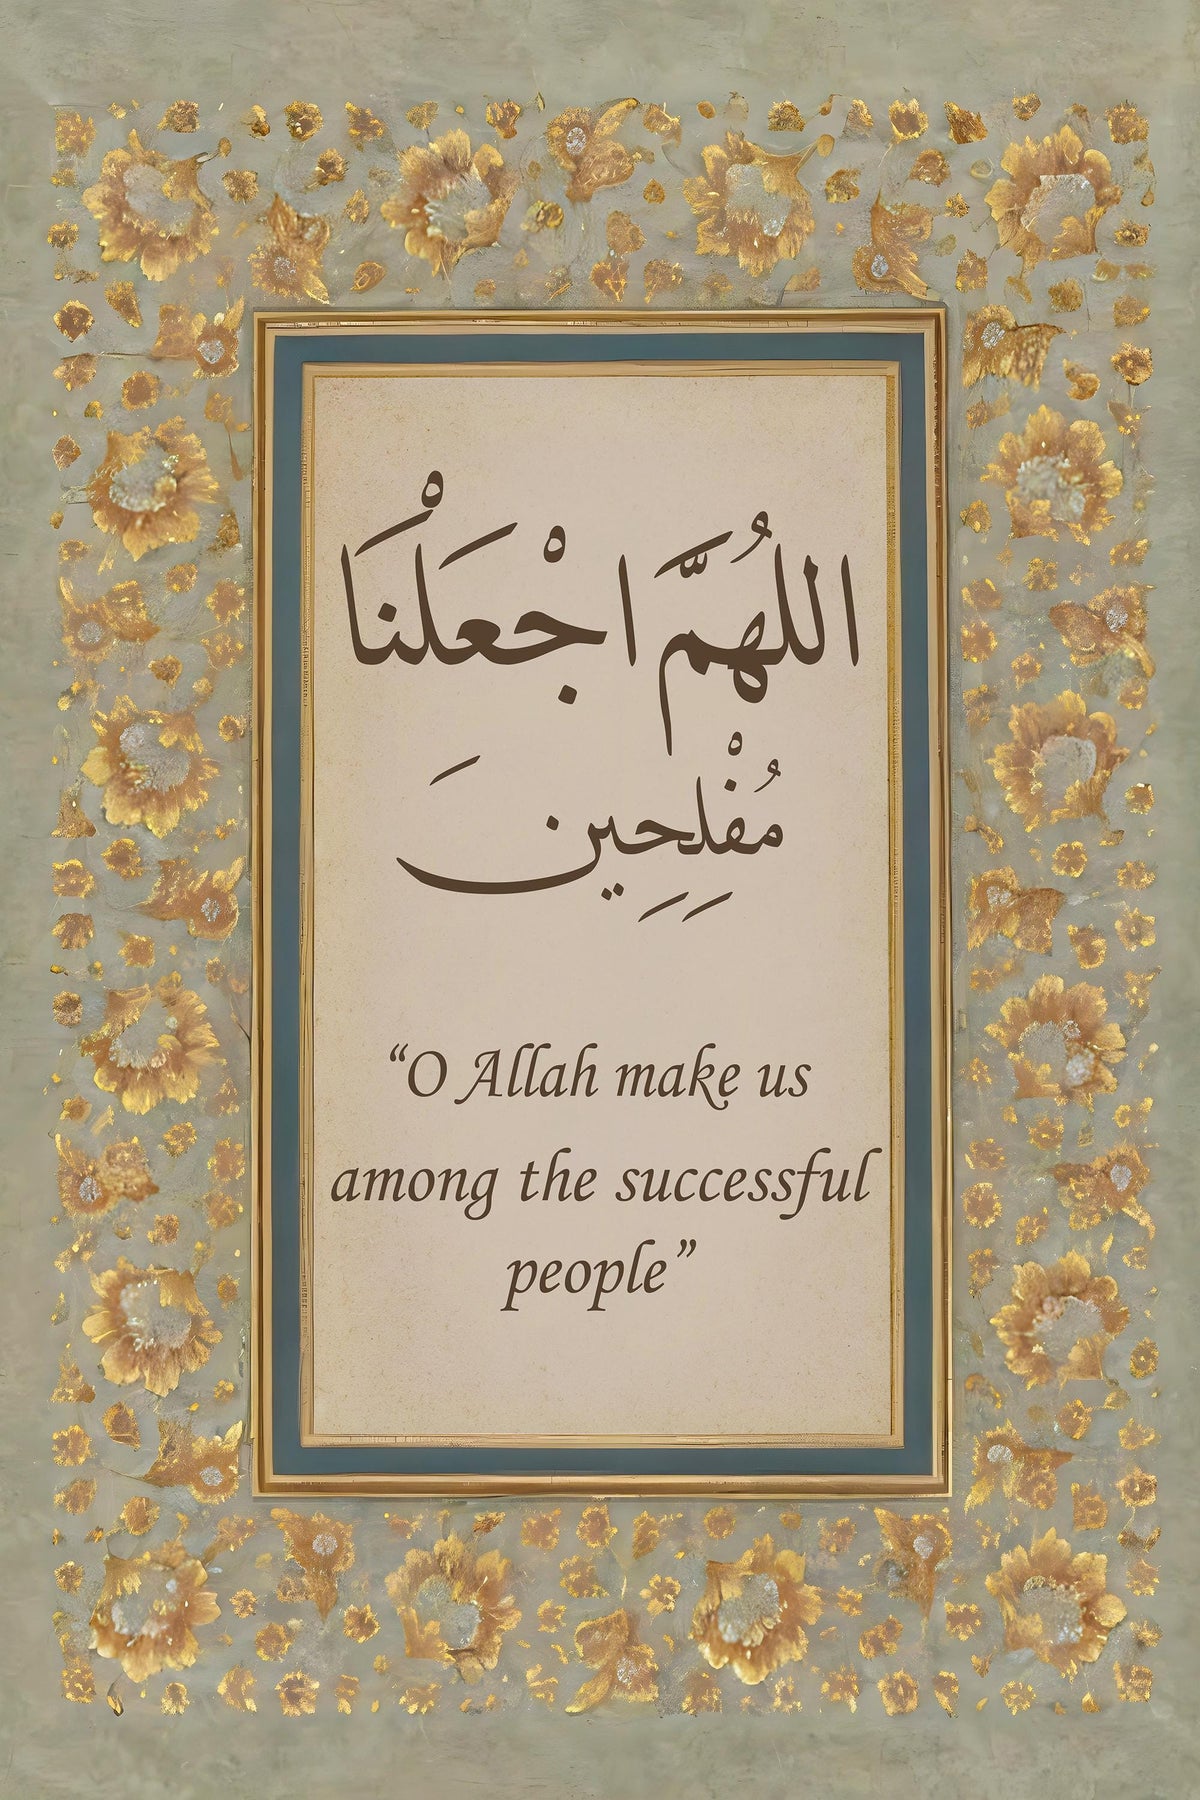 اللهُمَّ اجْعَلْنَا
مُفْلِحِينَ
“O Allah make us
among the successful
people”